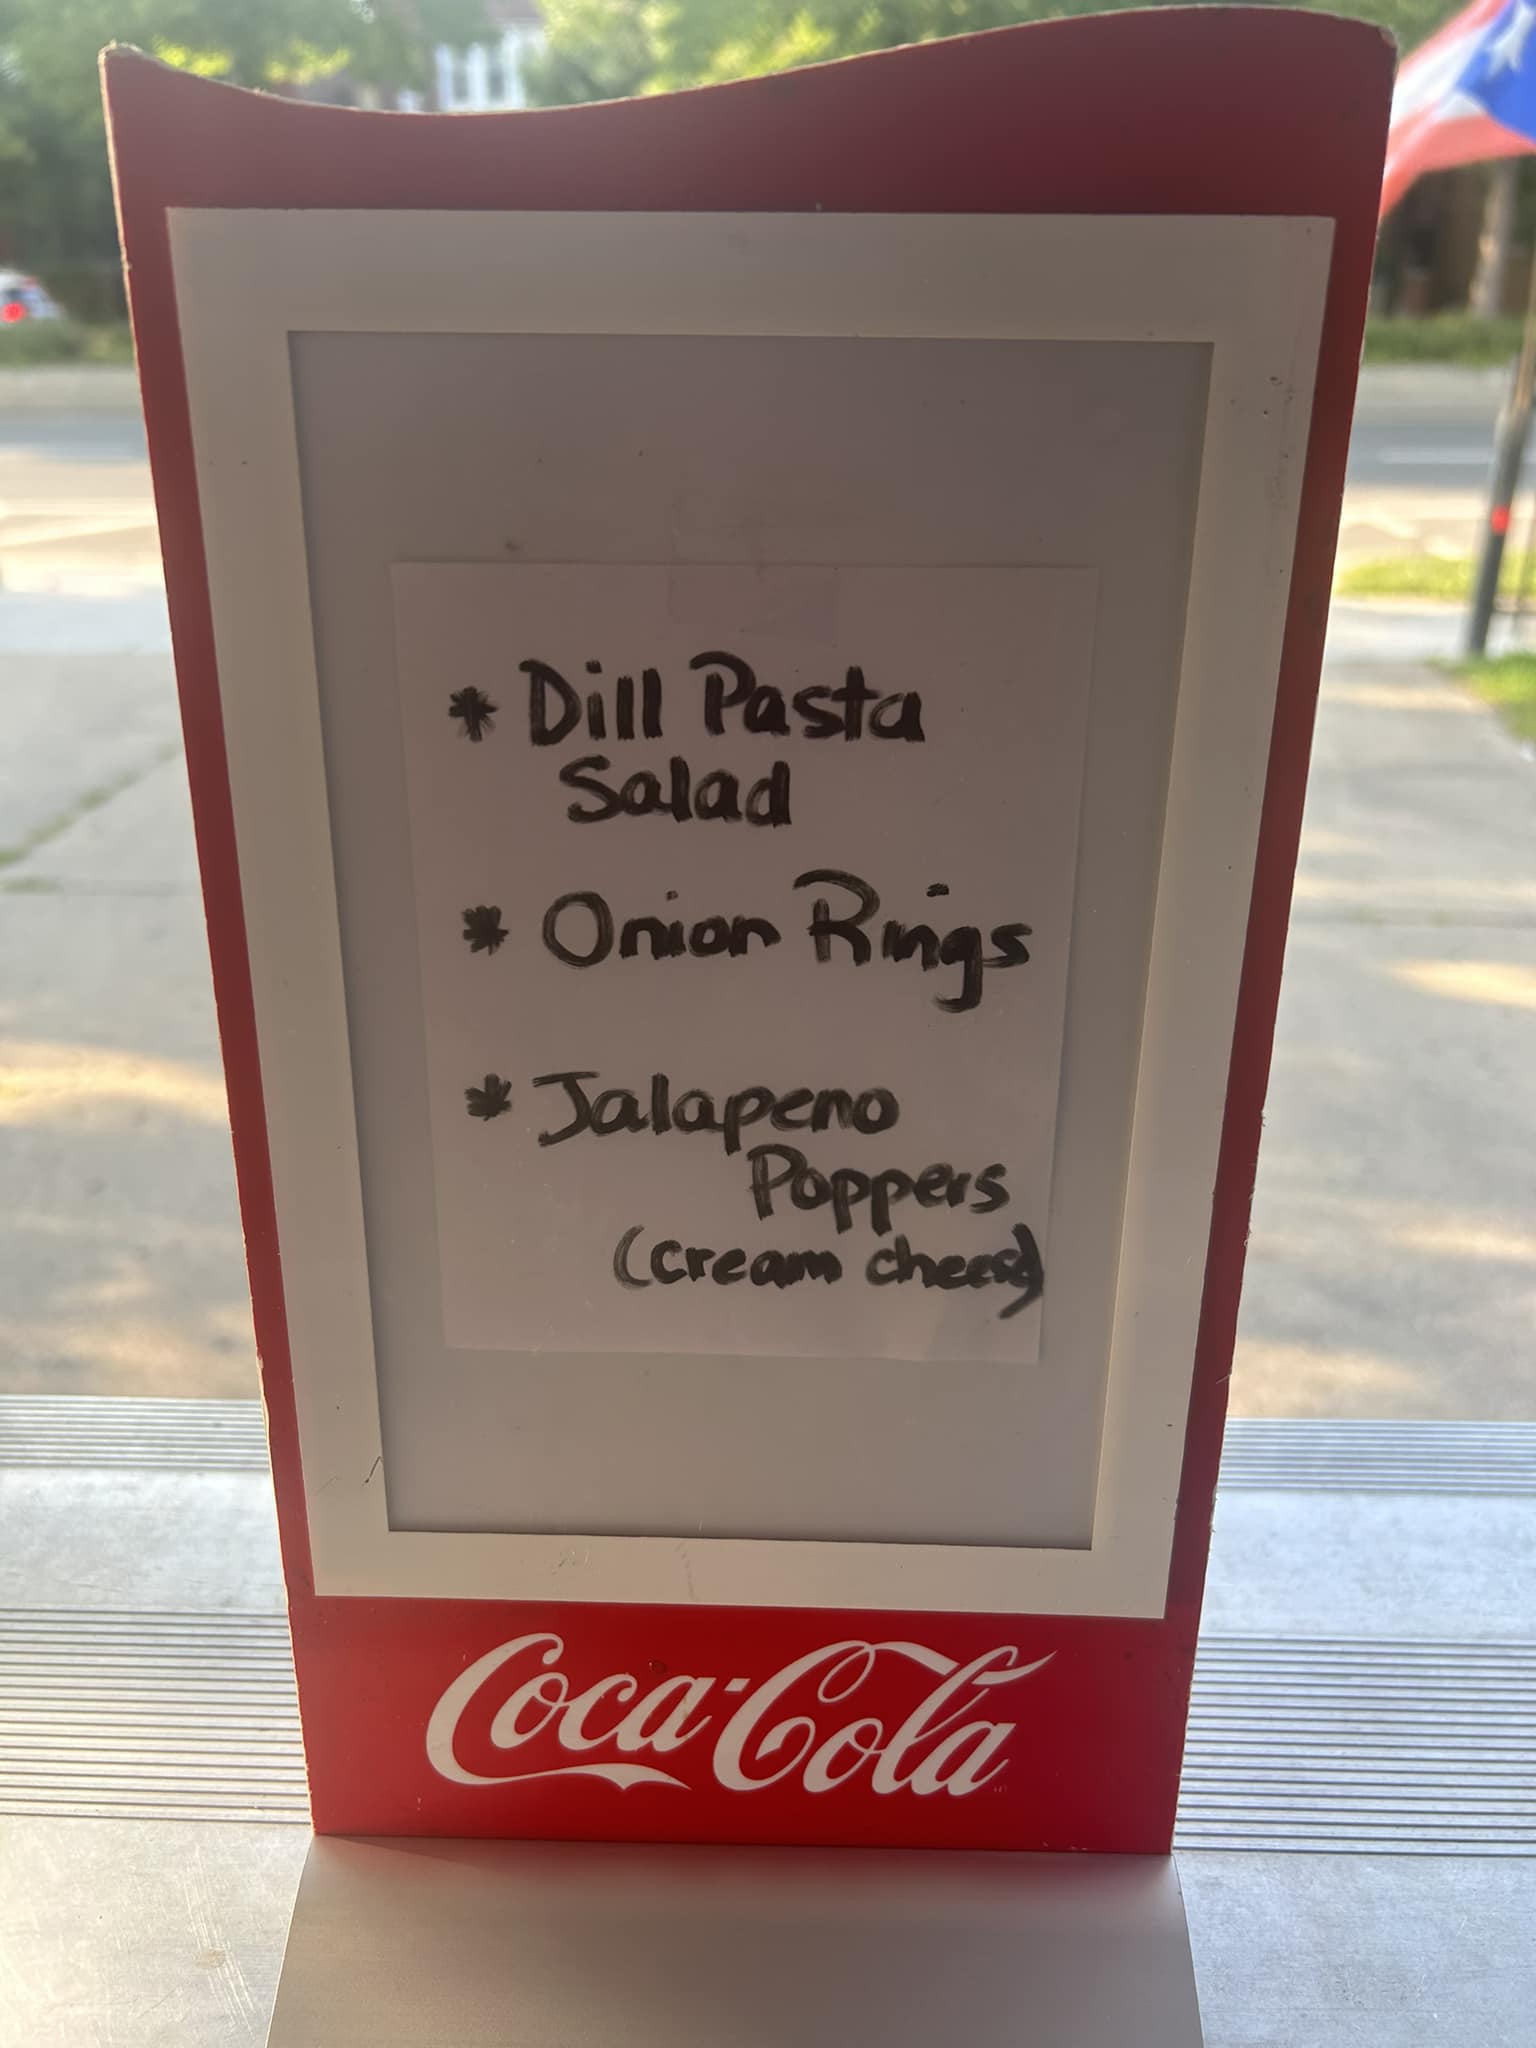 * Dill Pasta
Salad
* Onion Rings
* Jalapeno
Poppers
(cream cheese)
Coca-Cola